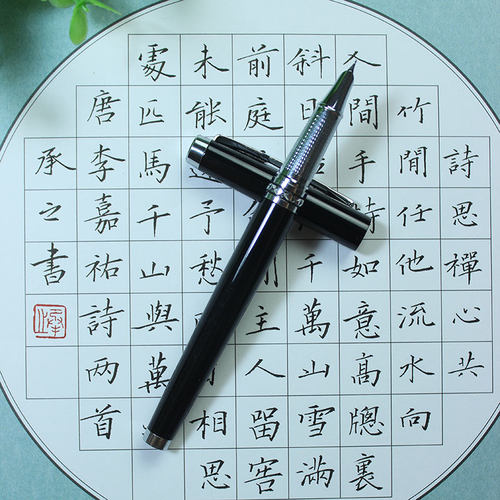 詩思禪心共
竹閒任他流水向
人間手持如意高牕裏
斜日千萬山雪滿
前庭主人畱客
未能予愁相思
處匹馬千山與萬
唐李嘉祐詩两首
承之書